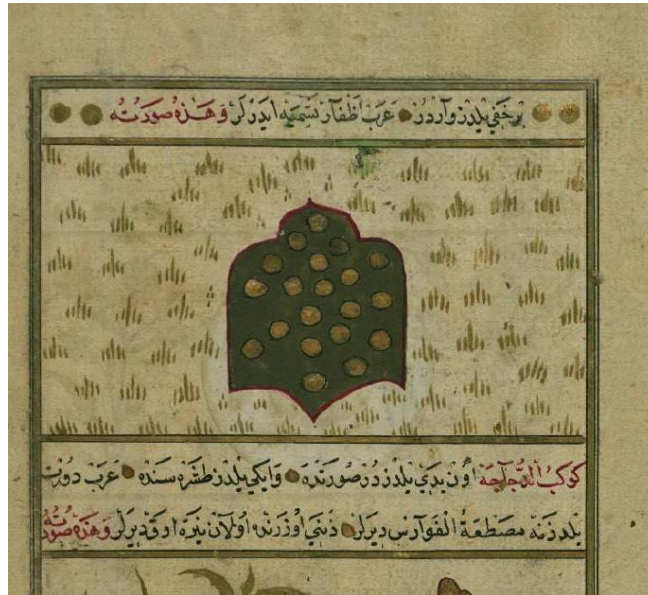 برخفي يلدز واردر عرب اظفار تسميه ايدرلر وهذه صورته
كوكب الدجاجة اون يدي يلدزدر صورتنده وايكي يلدز طشره سنده عرب دورت
يلدزنه الفوارس ديرلر ذنبي اوزرنده اولان نيره اوق ديرلر وهذه صورته